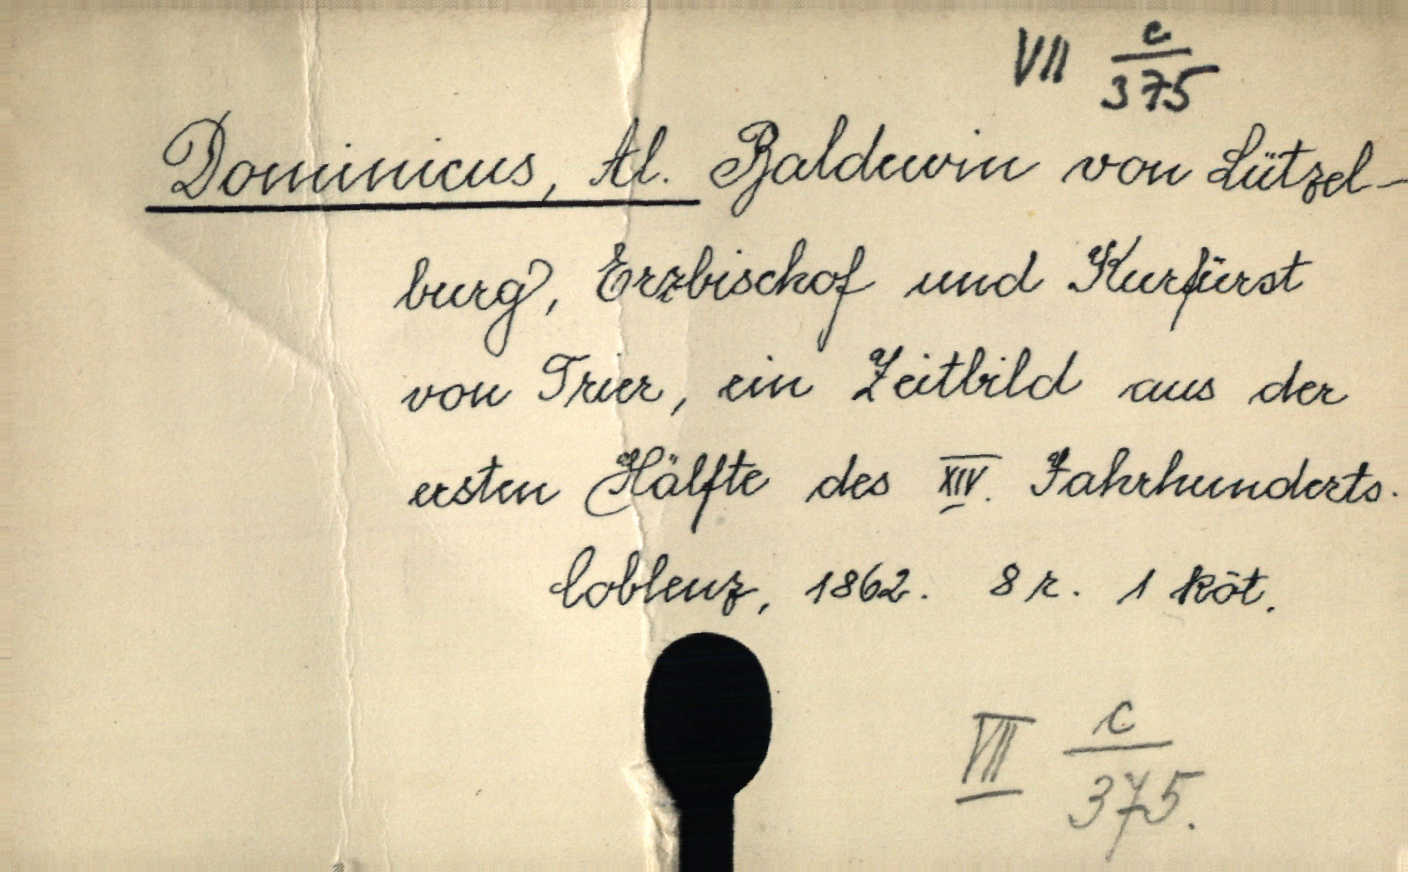 VII c/375
Dominicus, Al. Baldewin von Lützel-
burg, Erzbischof und Kurfürst
von Trier, ein Zeitbild aus der
ersten Hälfte des XIV. Jahrhunderts.
Coblenz, 1862. 8 r. 1 köt.
VII c/375.